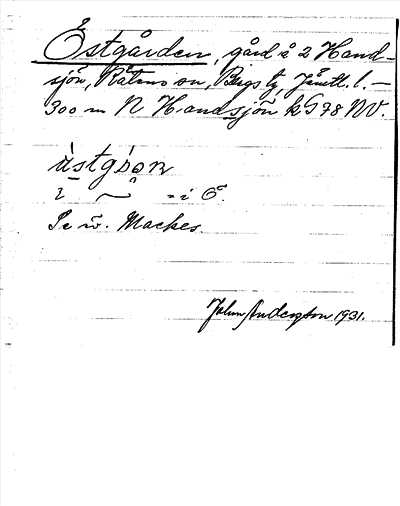 Östgården, gård å 2 Hand-
sjön, Rätans sn, Bergs tg, Jämtl. l. —
300 m N Handsjön k G 78 NV.
i ~ = i Ö.
Se v. Mackes.
John Anderzson 1931.